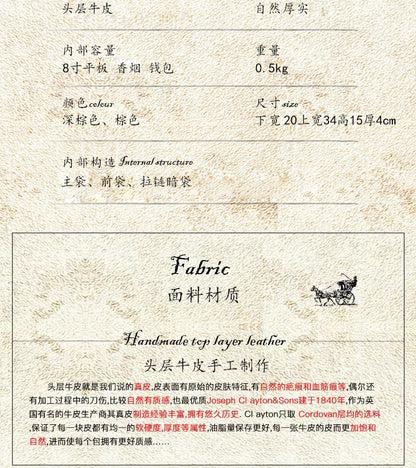 头层牛皮 自然厚实
内部容量 重量
8寸平板 香烟 钱包 0.5kg
颜色colour 尺寸size
深棕色、棕色 下宽20上宽34高15厚4cm
内部构造Internal structure
主袋、前袋、拉链暗袋
Fabric
面料材质
Handmade top layer leather
头层牛皮手工制作
头层牛皮就是我们说的真皮,皮表面有原始的皮肤特征,有自然的疤痕和血筋痕等,偶尔还
有加工过程中的刀伤,比较自然有质感,也最优质Joseph Cl ayton&Sons建于1840年,作为英
国有名的牛皮生产商其真皮制造经验丰富,拥有悠久历史. Cl ayton只取 Cordovan层均的选料
,保证了每一块皮都有均一的软硬度,厚度等属性,油脂量保存更好,每一张牛皮的皮而更加饱和
自然,进而使每个包拥有更好质感......